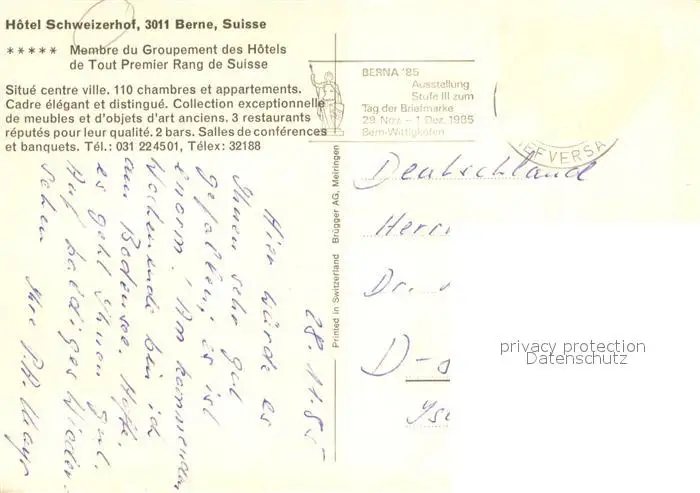 Hôtel Schweizerhof, 3011 Berne, Suisse
***** Membre du Groupement des Hôtels
de Tout Premier Rang de Suisse
Situé centre ville. 110 chambres et appartements.
Cadre élégant et distingué. Collection exceptionnelle
de meubles et d'objets d'art anciens. 3 restaurants
réputés pour leur qualité. 2 bars. Salles de conférences
et banquets. Tél.: 031 224501, Télex: 32188
BERNA '85
Ausstellung
Stufe III zum
Tag der Briefmarke
28. Nov. - 1. Dez. 1985
Bern-Wittigkofen
EFVERSA
Printed in Switzerland Brügger AG, Meiringen
28.11.85
Hier würde es
Ihnen sehr gut
gefallen; es ist
enorm! Am kommenden
Wochenende bin ich
am Bodensee. Hoffe,
es geht Ihnen gut.
Auf baldiges Wieder-
sehen
Ihre
Deutschland
Herr
Dr.
D-
privacy protection
Datenschutz